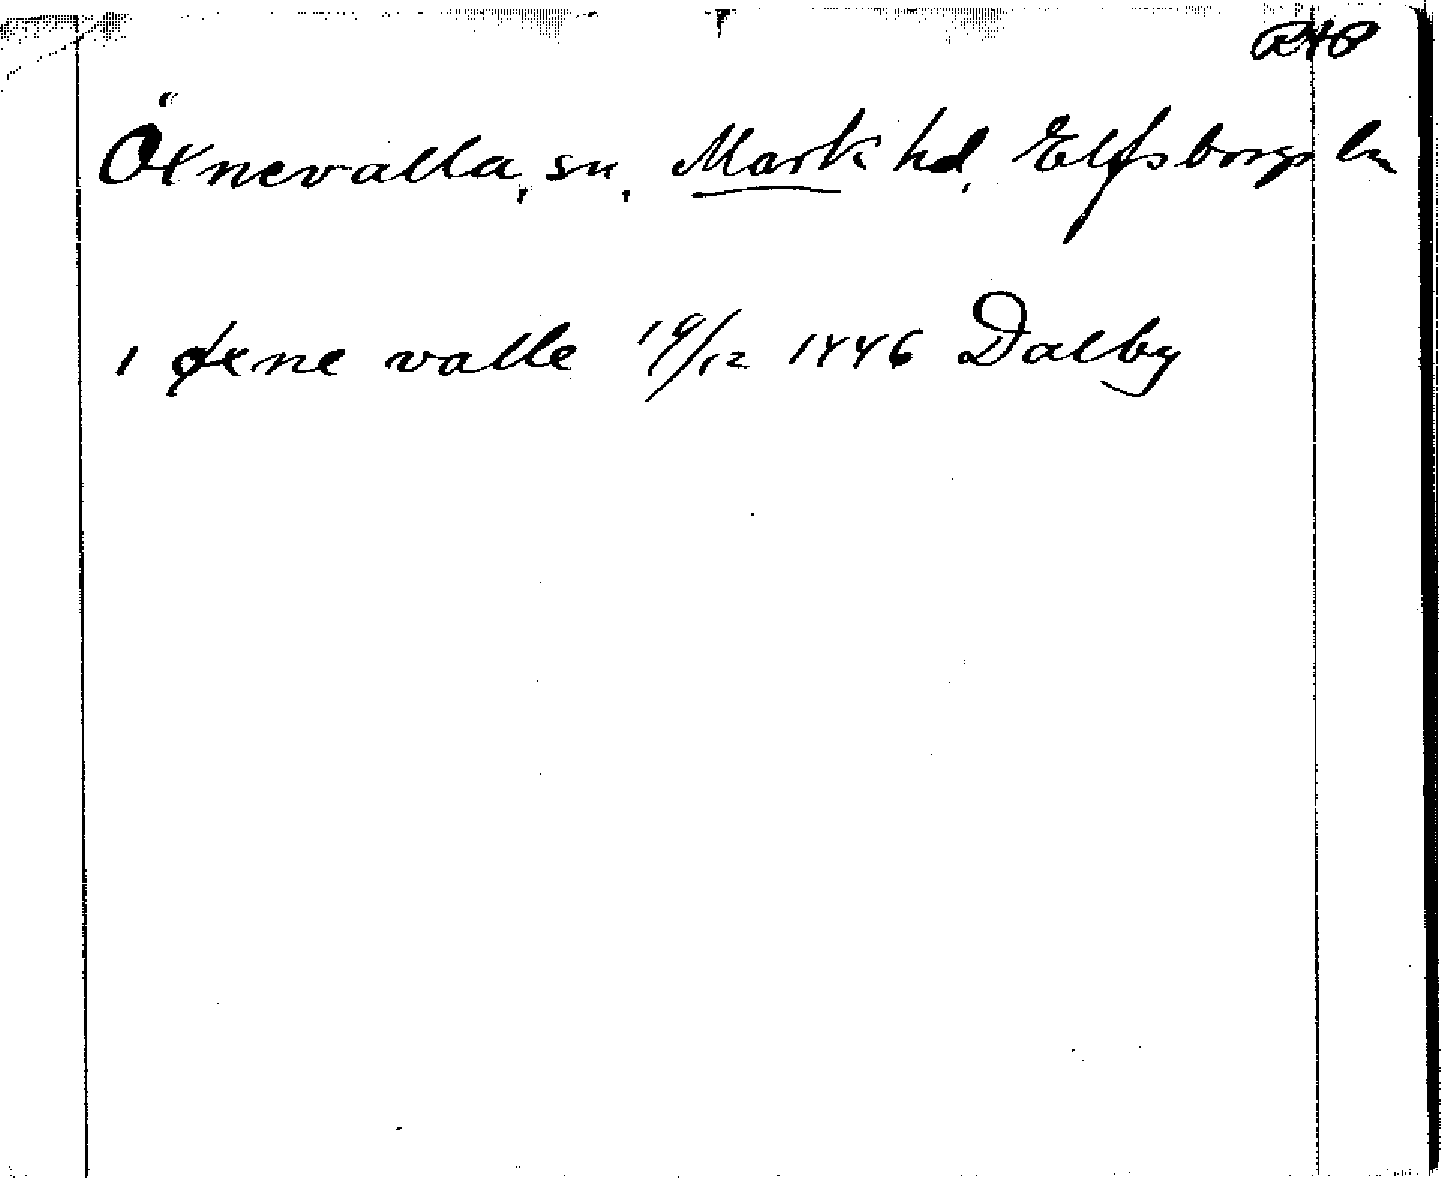 Öxnevalla, sn, Mark hd, Elfsborgs ln
1 øxne valle 19/12 1446 Dalby